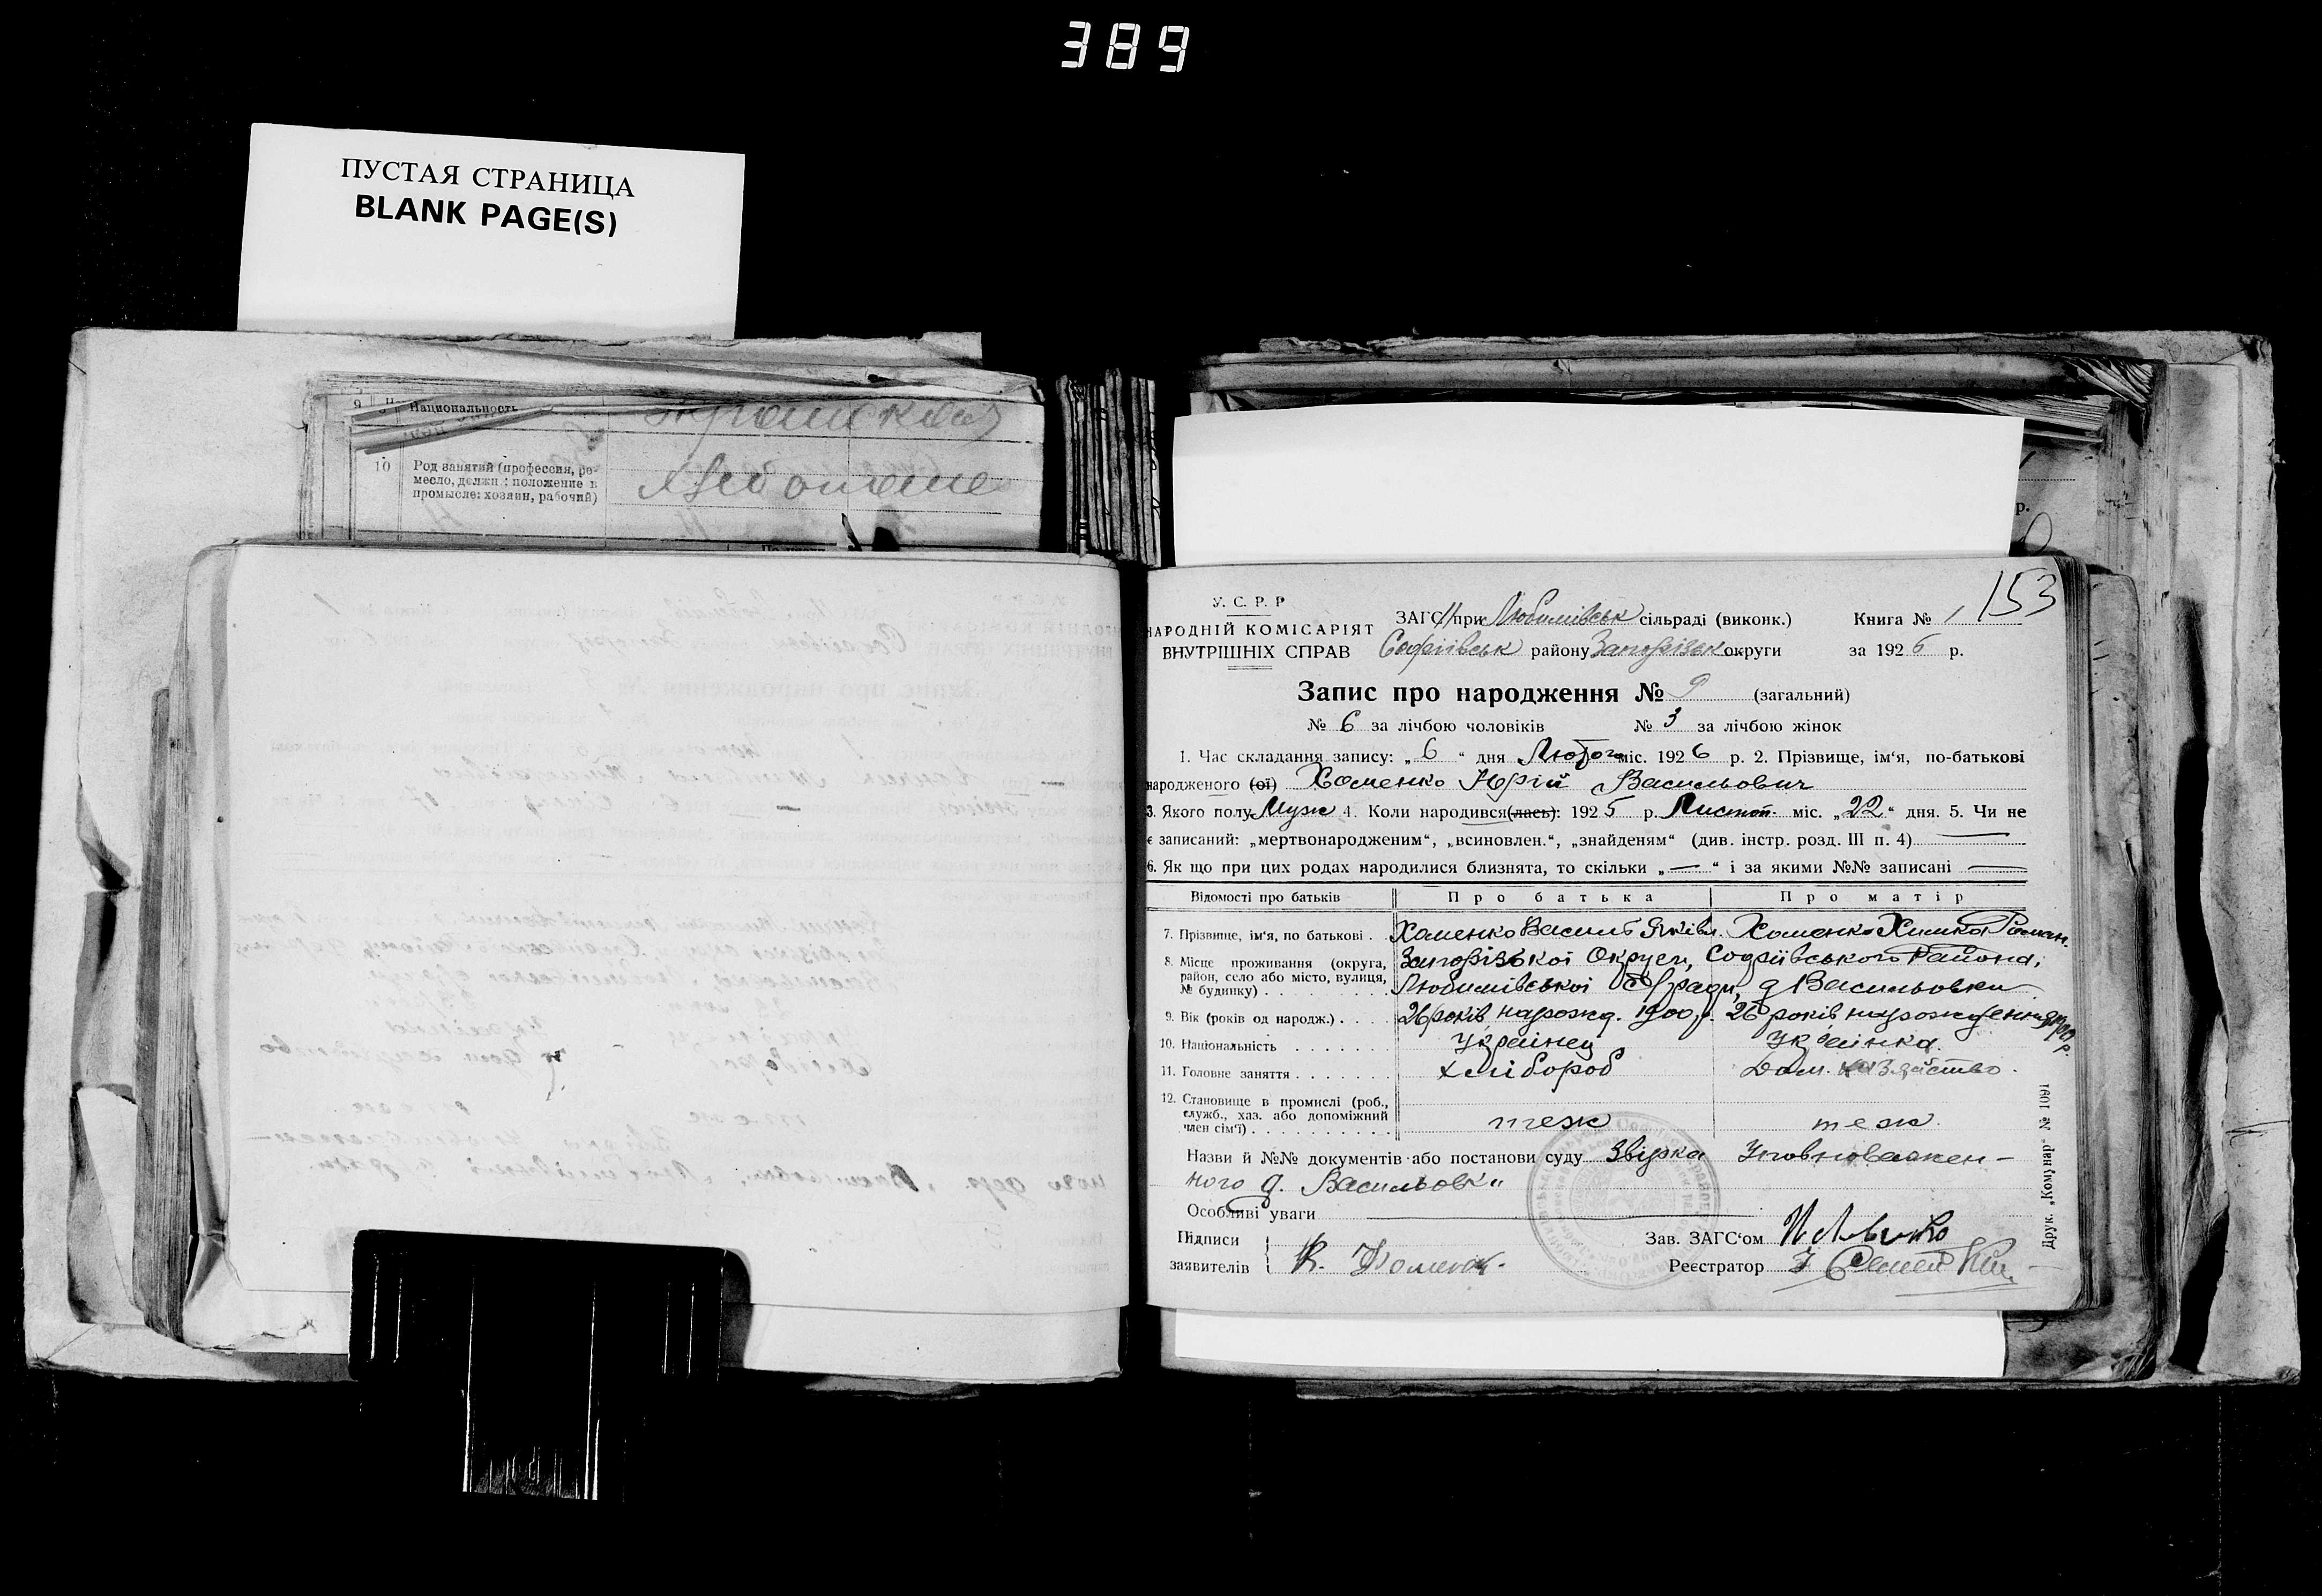 389
ПУСТАЯ СТРАНИЦА
BLANK PAGE(S)
9 Национальность
10 Род занятий (профессия, ре-
месло, должн : положение в
промысле: хозяин, рабочий)
153
У. С. Р. Р
НАРОДНІЙ КОМІСАРІЯТ
ВНУТРІШНІХ СПРАВ
ЗАГС при Любимівськ сільраді (виконк.) Книга № 1
Софіївськ району Запорізьк округи за 1926 р.
Запис про народження № 9 (загальний)
№ 6 за лічбою чоловіків № 3 за лічбою жінок
1. Час складання запису: „ 6 “ дня Лютог міс. 1926 р. 2. Прізвище, ім‘я, по-батькові
народженого (ої) Хоменко Юрій Васильович
3. Якого полу Муж 4. Коли народився(лась): 1925 р. Листоп. міс. „22“ дня. 5. Чи не
є записаний: „мертвонародженим“, „всиновлен.“, „знайденям“ (див. інстр. розд. III п. 4)
6. Як що при цих родах народилися близнята, то скільки „ — “ і за якими №№ записані —
Відомості про батьків Про батька Про матір
7. Прізвище, ім‘я, по батькові . Хоменко Василь Яківл. Хоменко Химка Роман.
8. Місце проживання (округа,
район, село або місто, вулиця,
№ будинку)
Запорізької Округи, Софіївського Района,
Любимівської С/ради, д Васильовки
9. Вік (років од народж.) . . . 26 років нарожд. 1900 р. 26 років нарождення 1900 р.
10. Національність . . . . . . Українец Українка.
11. Головне заняття . . . . . . . хлібороб Дом. хазяйство.
12. Становище в промислі (роб.,
служб., хаз. або допоміжний
член сім‘ї) . . . . . . . . . . теж теж.
Назви й №№ документів або постанови суду Звірка Уповноважен-
ного д. Васильовки
Особливі уваги
Підписи
заявителів В. Хоменк.
Зав. ЗАГС‘ом
Реєстратор
Друк. „Комунар“ № 1091